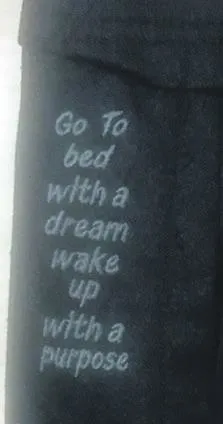 Go To
bed
with a
dream
wake
up
with a
purpose